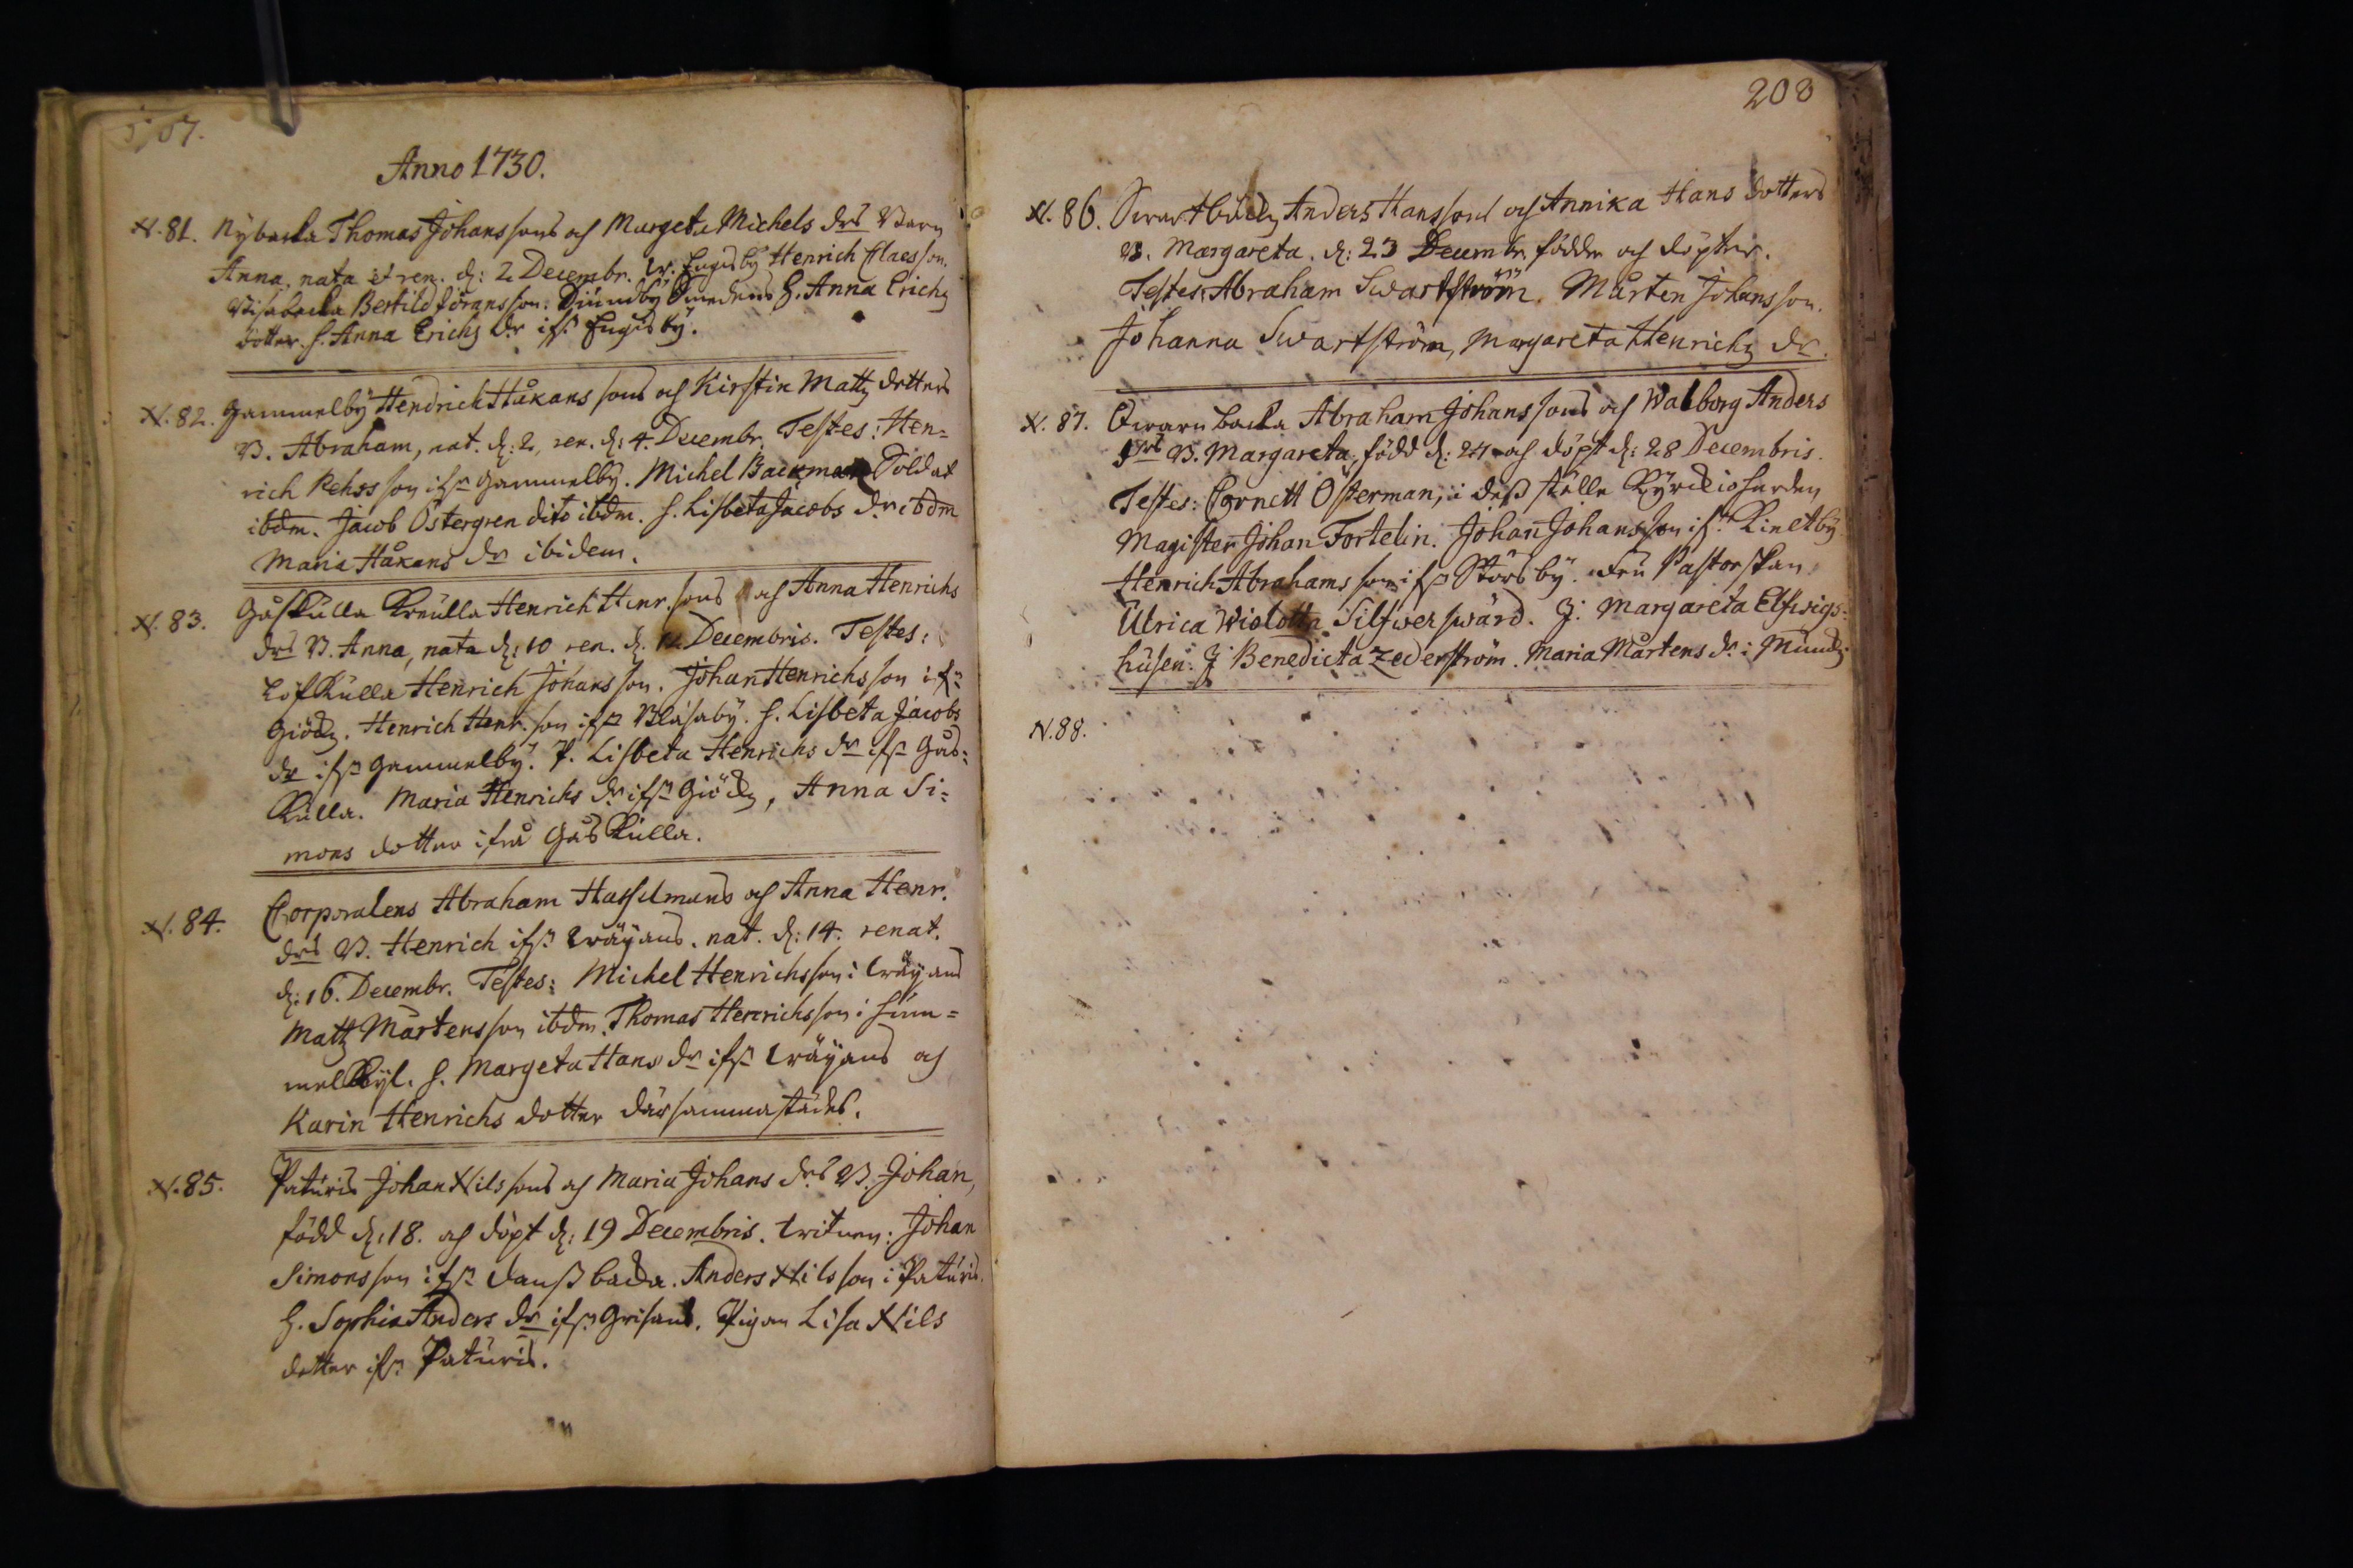 Anno 1730.
N. 81. Nybacka Thomas Johanssons och Margeta Michels drs Barn
Anna, nata et ren. d: 2 Decembr. W. Engisby Henrich Claesson.
Bertild Joransson. Sundby Smedens H. Anna Erichz
dotter. H. Anna Erichz dr ifr Engisby.
N. 82. Gammelby Hendrich Håkanssons och Kirstin Mattz dotters
B. Abraham, nat. d: 2, ren. d: 4. Decembr. Testes: Hen=
rich son ifr Gammelby. Michel Backman Soldat
ibdm. Jacob Östergren dito ibdm. H. Lisbeta Jacobs dr ibdm
Maria Håkans dr ibidem.
N. 83. Gåskulla Henrich Henr.sons och Anna Henrichs
drs B. Anna, nata d: 10 ren. d. Decembris. Testes:
Löfkulla Henrich Johansson. Johan Henrichsson ifr
Giödz. Henrich Henr.son ifr Blåsaby. H. Lisbeta Jacobs
dr ifr Gammelby. P. Lisbeta Henrichs dr ifr Gås=
kulla. Maria Henrichs dr ifr Giödz, Anna Si=
mons dotter ifrå Gåskulla.
N. 84. Corporalens Abraham Hasselmans och Anna Henr.
drs B. Henrich ifr Wäyans. nat. d: 14. renat.
d: 16. Decembr. Testes: Michel Henrichsson i Wäyans
Mattz Mårtensson ibdm. Thomas Henrichsson i Hum=
melkyl. H. Margeta Hans dr ifr Wäyans och
Karin Henrichs dotter därsammastädes.
N. 85. Paturis Johan Nilssons och Maria Johans drs B. Johan,
född d: 18. och döpt d: 19 Decembris. Witnen: Johan
Simonsson ifr Dansbacka. Anders Nilsson i Paturis.
H. Sophia Anders dr ifr Grisans. Pigan Lisa Nils
dotter ifr Paturis.
208
N. 86. Anders Hanssons och Annika Hans dotters
B. Margareta. d: 23 Decembr. födder och döpter.
Testes: Abraham Swartström. Mårten Johansson.
Johanna Swartström, Margareta Henrichz dr.
N. 87. Qwarnbacka Abraham Johanssons och Walborg Anders
drs B. Margareta, född d: 27 och döpt d: 28 Decembris.
Testes: Cornett Österman, i dess ställe Kyrckioherden
Magister Johan Fortelin. Johan Johansson ifr
Henrich Abrahamsson ifr Störsby. Fru Pastorskan
Ulrica Wiolotta Silfwerswärd. J: Margareta Elfwigs=
husen. J Benedicta Zederström. Maria Mårtens dr i
N. 88.